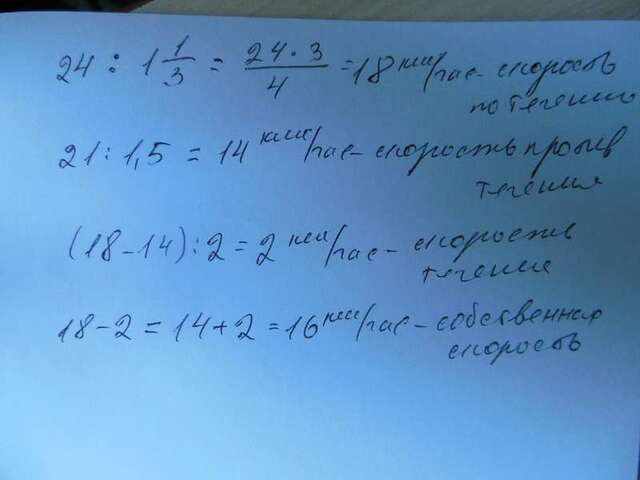 24 : 1 1/3 = 24·3/4 = 18 км/час - скорость
по течению
21 : 1,5 = 14 км/час - скорость против
течения
(18-14) : 2 = 2 км/час - скорость
течения
18-2 = 14+2 = 16 км/час - собственная
скорость